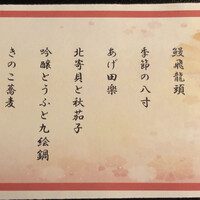 鰻飛龍頭
季節の八寸
あげ田楽
北寄貝と秋茄子
吟醸とうふと九絵鍋
きのこ蕎麦